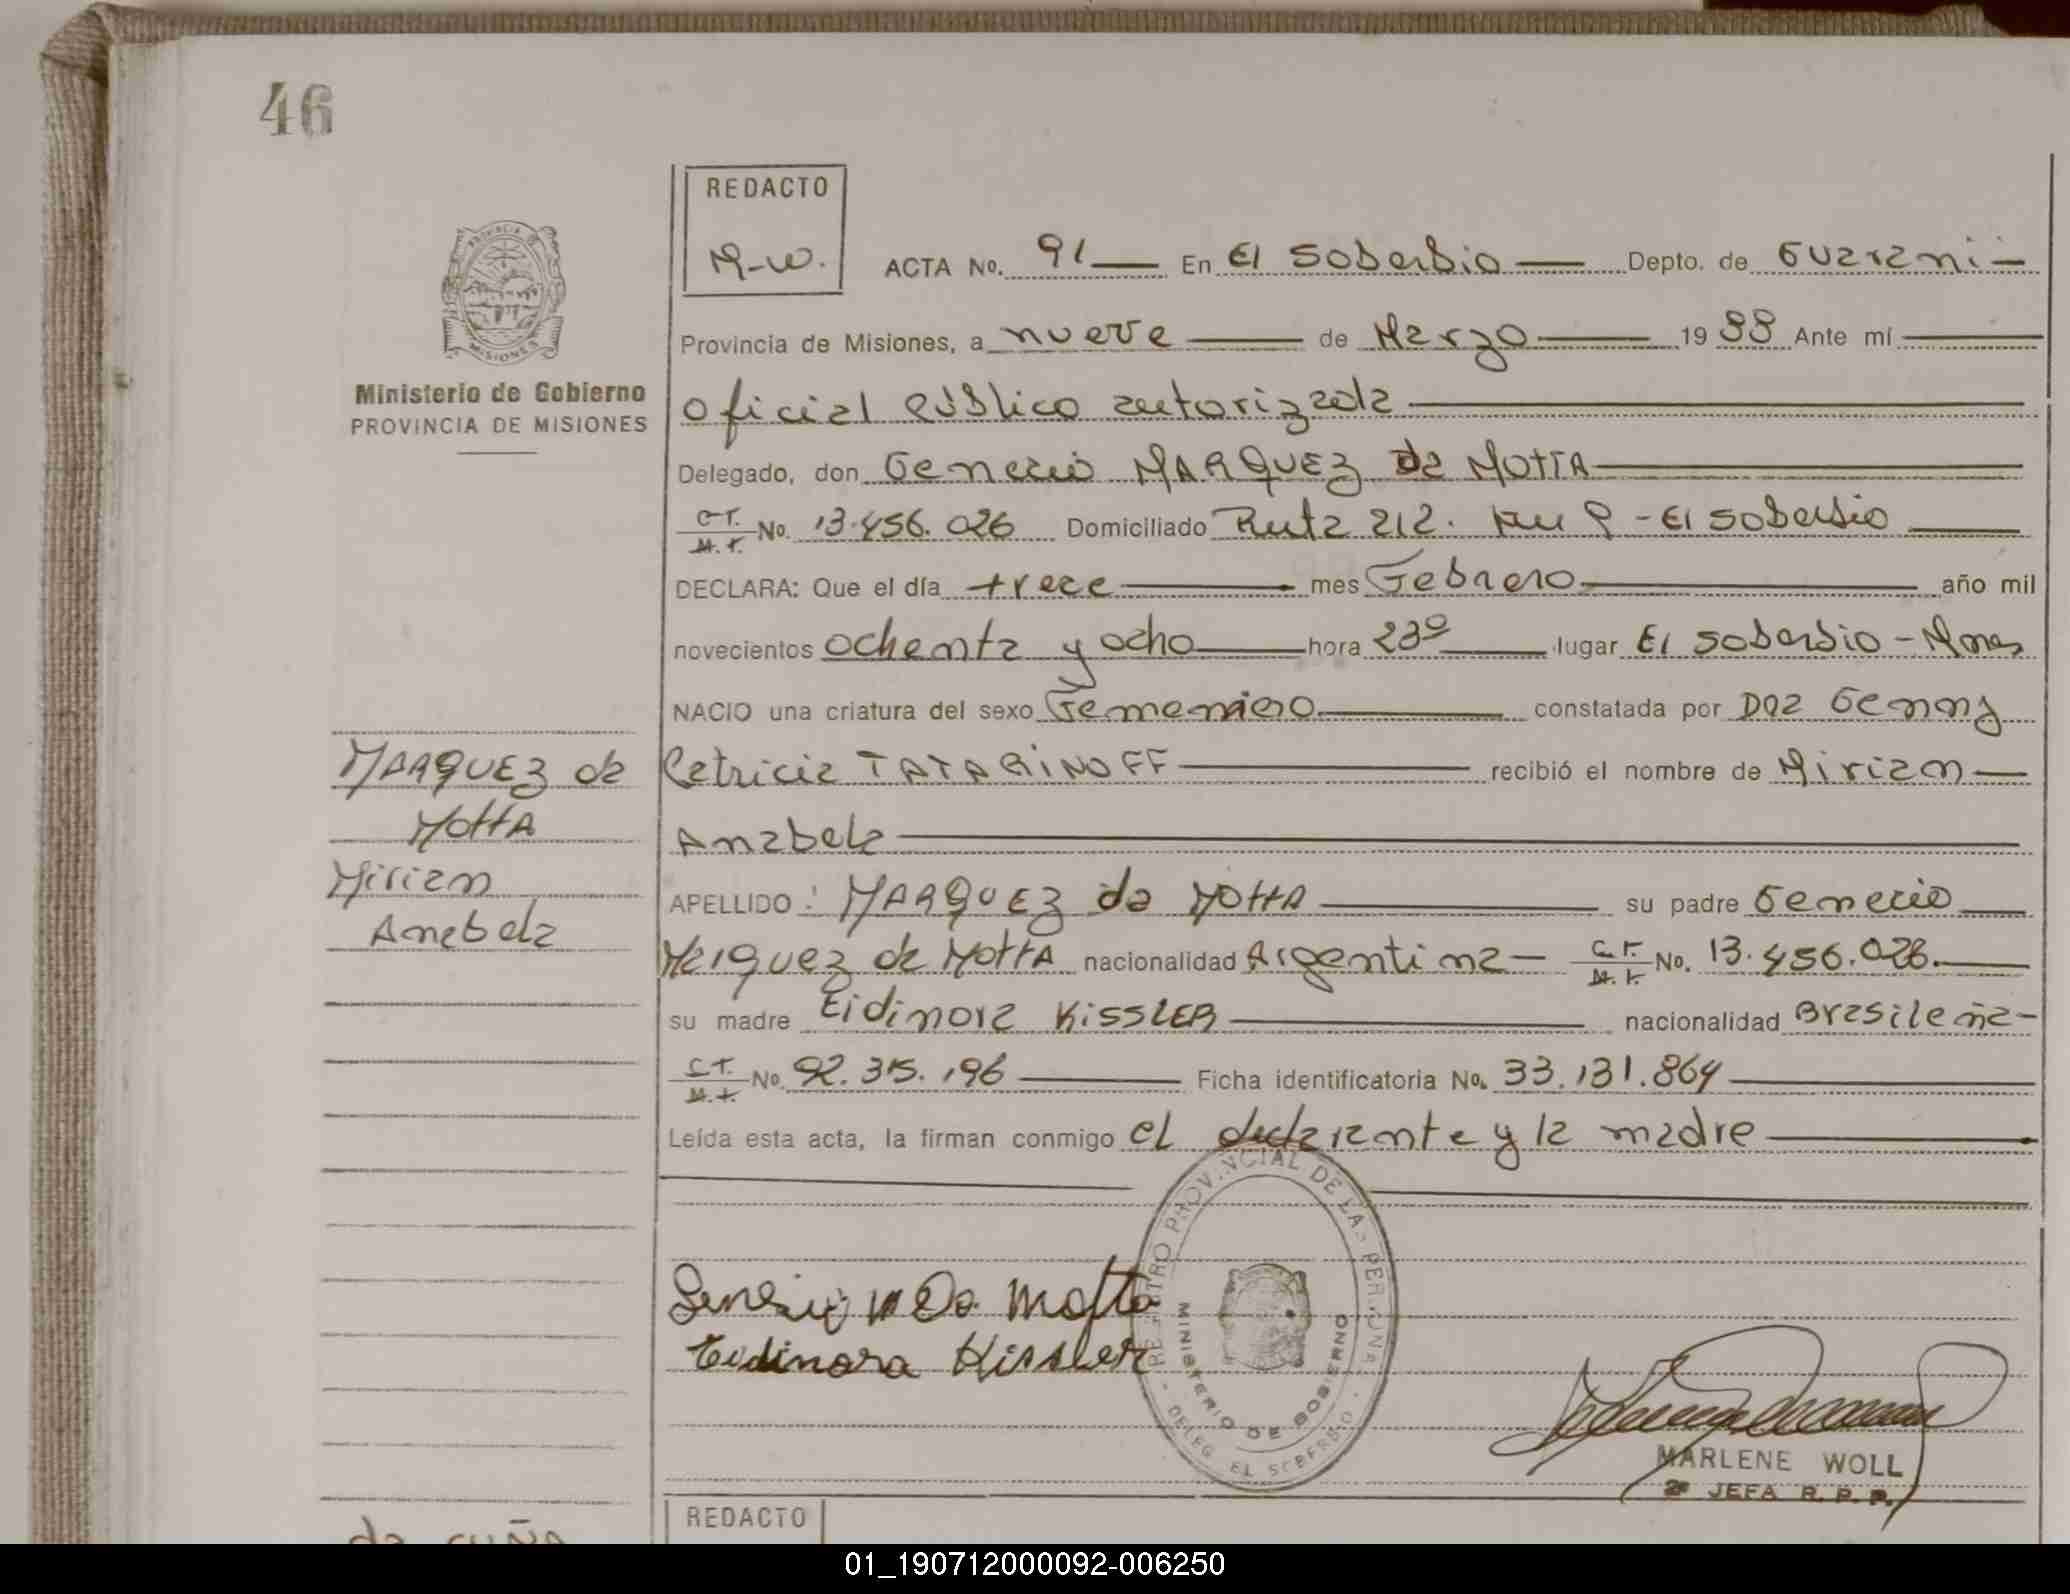 46
REDACTO
M-W.
ACTA No. 91 En El Soberbio Depto. de Guarani
PROVINCIA DE MISIONES
Ministerio de Gobierno
PROVINCIA DE MISIONES
Provincia de Misiones, a nueve de Marzo 1988 Ante mí
oficial público autorizada
Delegado, don Genecio MARQUEZ da MOTTA
C.I. M.I. No. 13.456.026 Domiciliado Ruta 212. km 9 - El Soberbio
DECLARA: Que el día trece mes Febrero año mil
novecientos ochenta y ocho hora 23º lugar El Soberbio - Mnes
NACIO una criatura del sexo Femenino constatada por Dra Genny
Patricia TATARINOFF recibió el nombre de Mirian
Anabela
MARQUEZ da
MOTTA
Mirian
Anabela
APELLIDO: MARQUEZ da MOTTA su padre Genecio
Marquez da MOTTA nacionalidad Argentina C.I. M.I. No. 13.456.026.
su madre Eidinora KISSLER nacionalidad Brasileña
C.I. M.I. No. 92.315.196 Ficha identificatoria No. 33.131.864
Leída esta acta, la firman conmigo el declarante y la madre
Genesio M Da Motta
Eidinora Kissler
REGISTRO PROVINCIAL DE LAS PERSONAS
MINISTERIO DE GOBIERNO
DELEG. EL SOBERBIO
MARLENE WOLL
2ª JEFA R. P. P.
REDACTO
da CUÑA
01_190712000092-006250